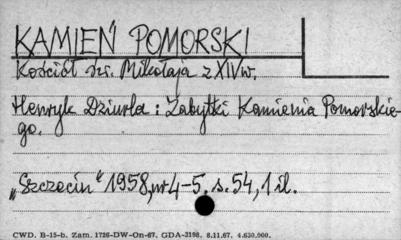 KAMIEŃ POMORSKI
Kościół św. Mikołaja z XIV w.
Henryk Dziurla: Zabytki Kamienia Pomorskie-
go.
„Szczecin" 1958, nr 4-5, s. 54, 1 il.
CWD. B-15-b. Zam. 1726-DW-On-67. GDA-3198. 8.11.67. 4.630.000.